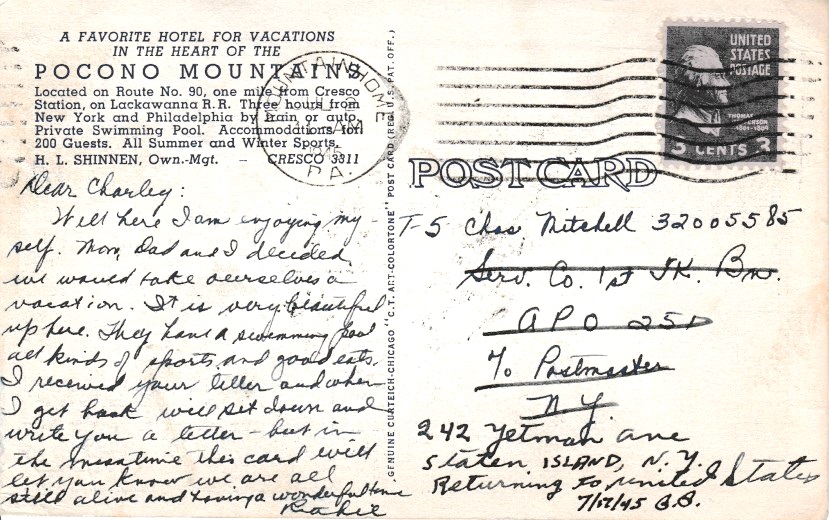 A FAVORITE HOTEL FOR VACATIONS
IN THE HEART OF THE
POCONO MOUNTAINS
Located on Route No. 90, one mile from Cresco
Station, on Lackawanna R.R. Three hours from
New York and Philadelphia by train or auto.
Private Swimming Pool. Accommodations for
200 Guests. All Summer and Winter Sports.
H. L. SHINNEN, Own.-Mgt. - CRESCO 3311
MOUNTAINHOME
PA.
UNITED
STATES
POSTAGE
THOMAS
JEFFERSON
1801-1809
3 CENTS 3
POST CARD
GENUINE CURTEICH-CHICAGO "C.T. ART-COLORTONE" POST CARD (REG. U.S. PAT. OFF.)
Dear Charley:
Well here I am enjoying my-
self. Mom, Dad and I decided
we would take ourselves a
vacation. It is very beautiful
up here. They have a swimming pool
all kinds of sports and good eats.
I received your letter and when
I get back will sit down and
write you a letter - but in
the meantime this card will
let you know we are all
still alive and having a wonderful time
T-5 Chas Mitchell 32005585
Serv. Co. 1st TK. Bn.
APO 251
c/o Postmaster
N.Y.
242 Yetman Ave
Staten ISLAND, N.Y.
Returning to United States
7/17/45 B.B.